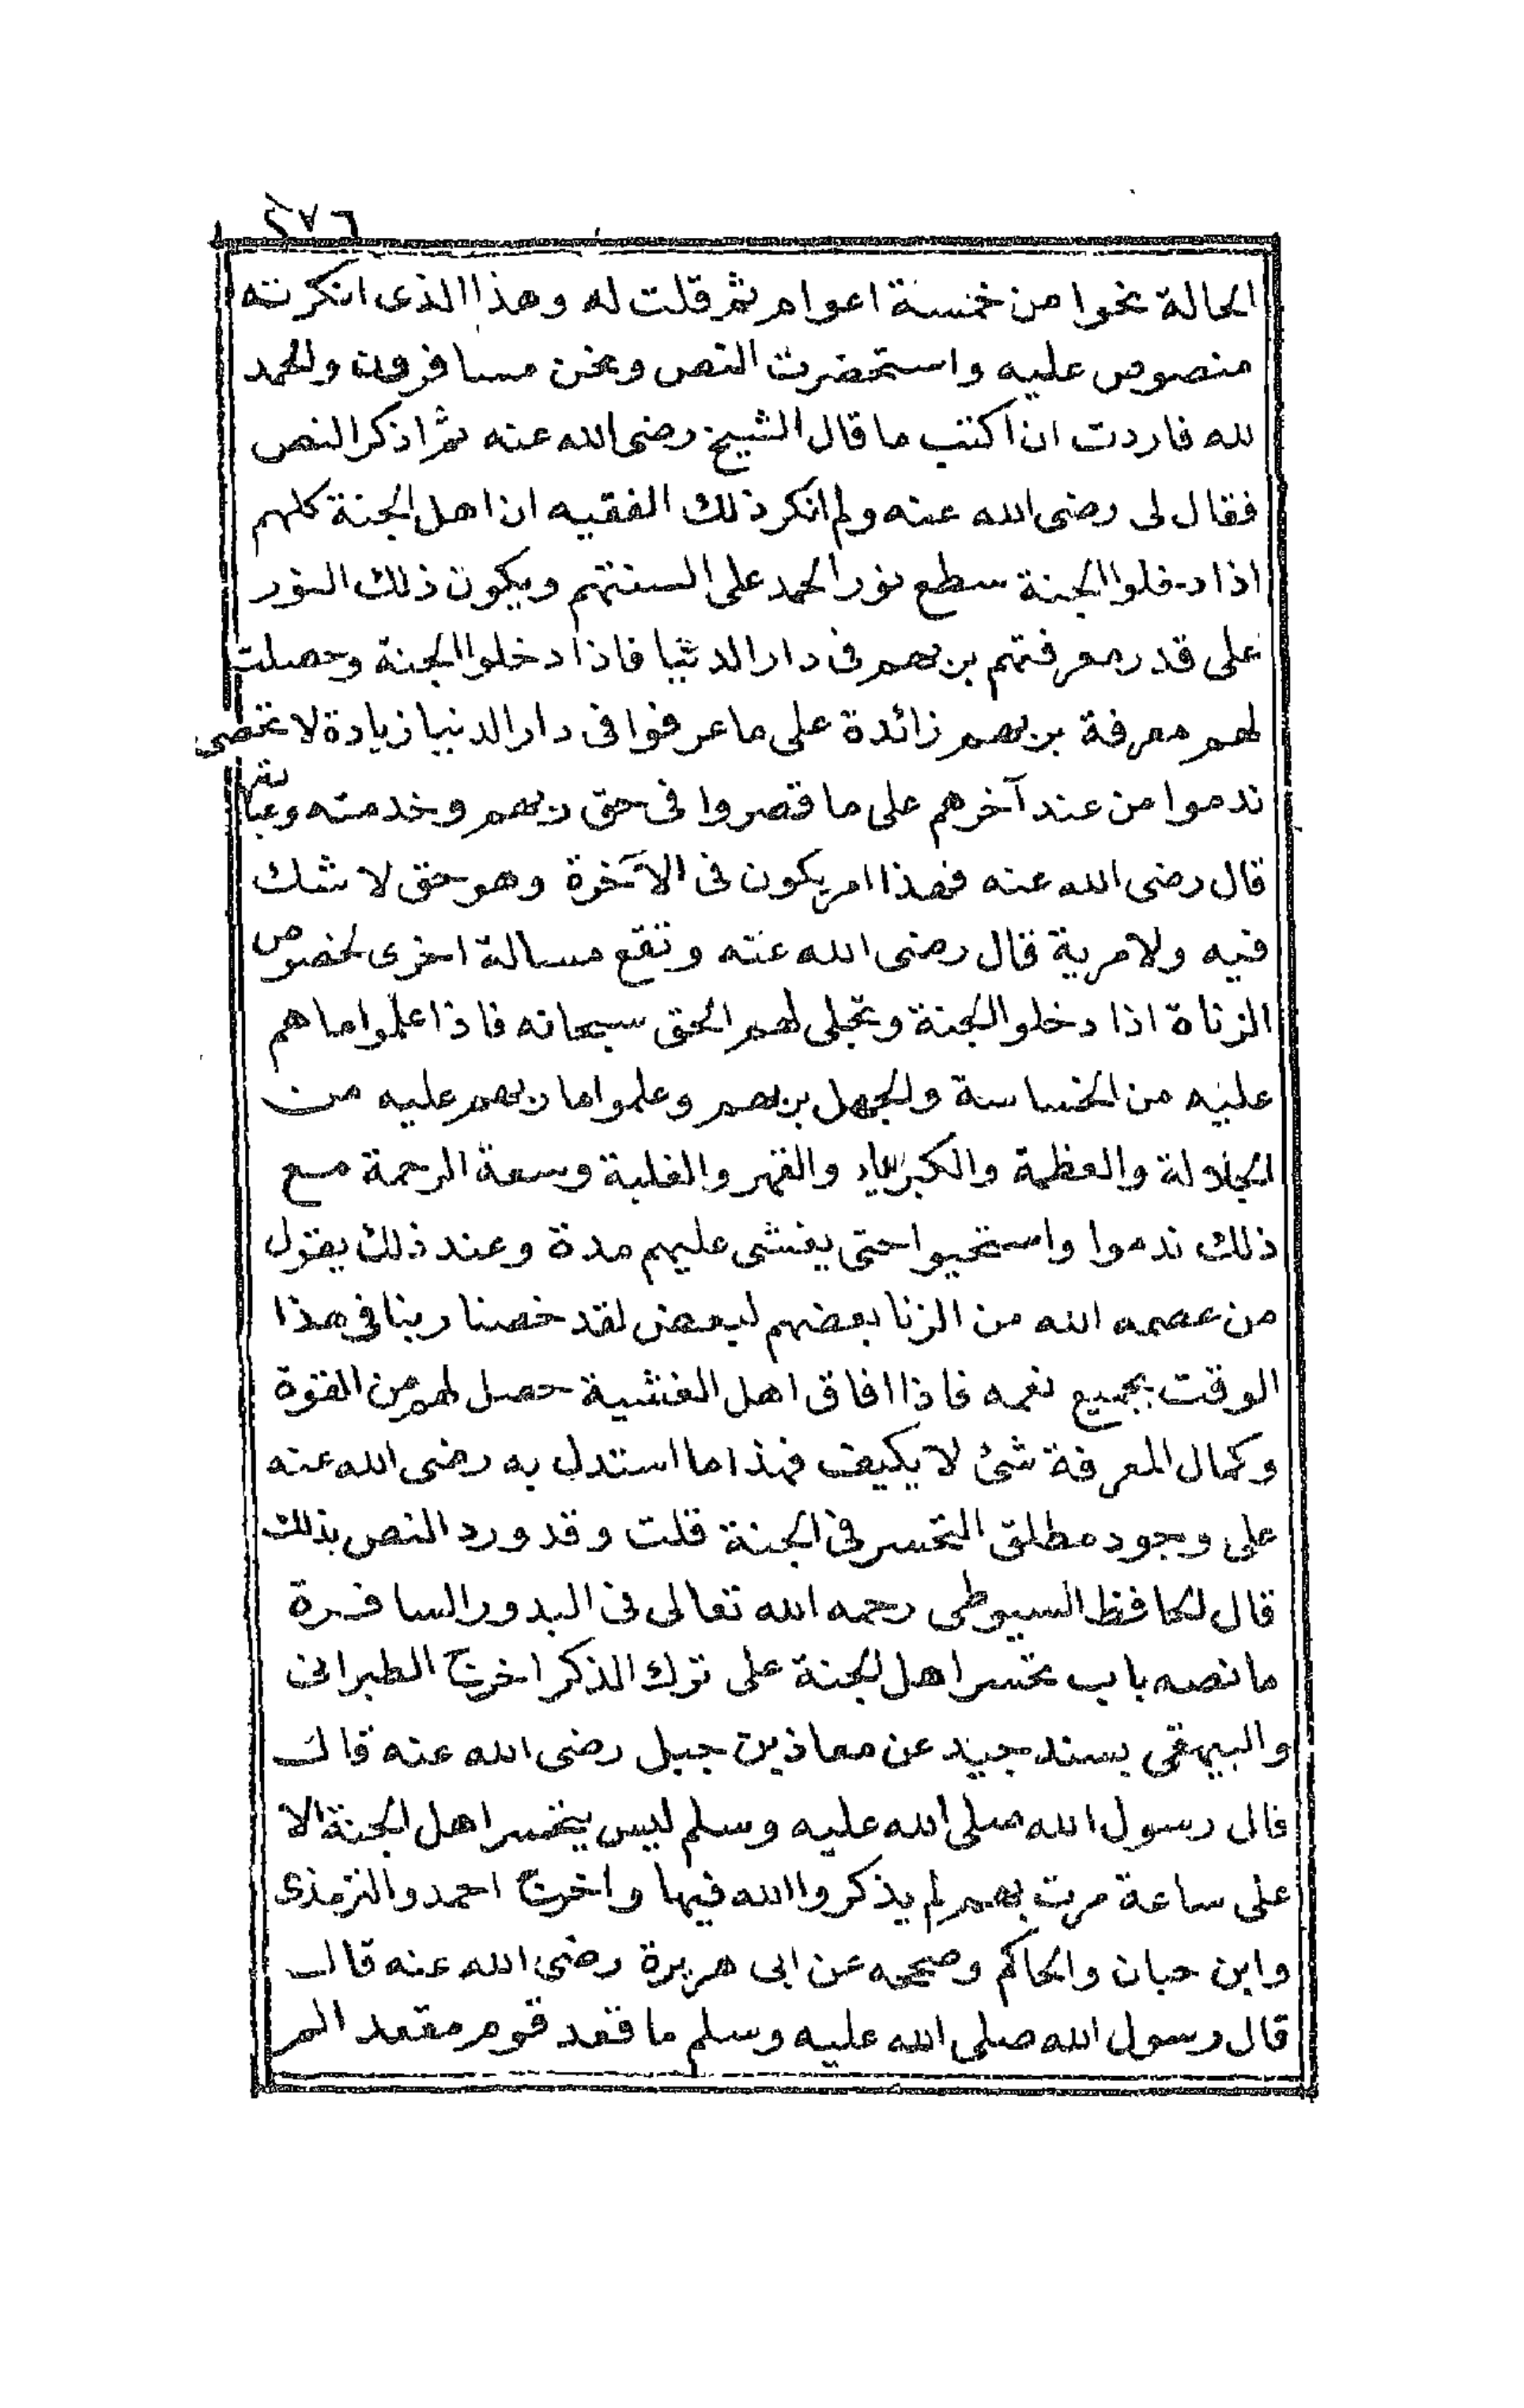 ٢٧٦
الحالة نحوا من خمسة اعوام ثم قلت له وهذا الذى انكرته
منصوص عليه واستحضرت النص ونحن مسافرون والحمد
لله فاردت ان اكتب ما قال الشيخ رضى الله عنه ثم اذكر النص
فقال لى رضى الله عنه ولم انكر ذلك الفقيه ان اهل الجنة كلهم
اذا دخلوا الجنة سطع نور الحمد على السنتهم ويكون ذلك النور
على قدر معرفتهم بربهم فى دار الدنيا فاذا دخلوا الجنة وحصلت
لهم معرفة بربهم زائدة على ما عرفوا فى دار الدنيا زيادة لا تحصى
ندموا من عند آخرهم على ما قصروا فى حق ربهم وخدمته وعباته
قال رضى الله عنه فهذا امر يكون فى الآخرة وهو حق لا شك
فيه ولا مرية قال رضى الله عنه وتقع مسالة اخرى لخصوص
الزناة اذا دخلوا الجنة وتجلى لهم الحق سبحانه فاذا علموا ما هم
عليه من الخساسة والجهل بربهم وعلموا ما ربهم عليه من
الجلالة والعظمة والكبرياء والقهر والغلبة وسعة الرحمة مع
ذلك ندموا واستحيوا حتى يغشى عليهم مدة وعند ذلك يقول
من عصمه الله من الزنا بعضهم لبعض لقد خصنا ربنا فى هذا
الوقت بجميع نعمه فاذا افاق اهل الغشية حصل لهم من القوة
وكمال المعرفة شئ لا يكيف فهذا ما استدل به رضى الله عنه
على وجود مطلق التحسر فى الجنة قلت وقد ورد النص بذلك
قال الحافظ السيوطى رحمه الله تعالى فى البدور السافرة
ما نصه باب تحسر اهل الجنة على ترك الذكر اخرج الطبرانى
والبيهقى بسند جيد عن معاذ بن جبل رضى الله عنه قال
قال رسول الله صلى الله عليه وسلم ليس يتحسر اهل الجنة الا
على ساعة مرت بهم لم يذكروا الله فيها واخرج احمد والترمذى
وابن حبان والحاكم وصححه عن ابى هريرة رضى الله عنه قال
قال رسول الله صلى الله عليه وسلم ما قعد قوم مقعد الم